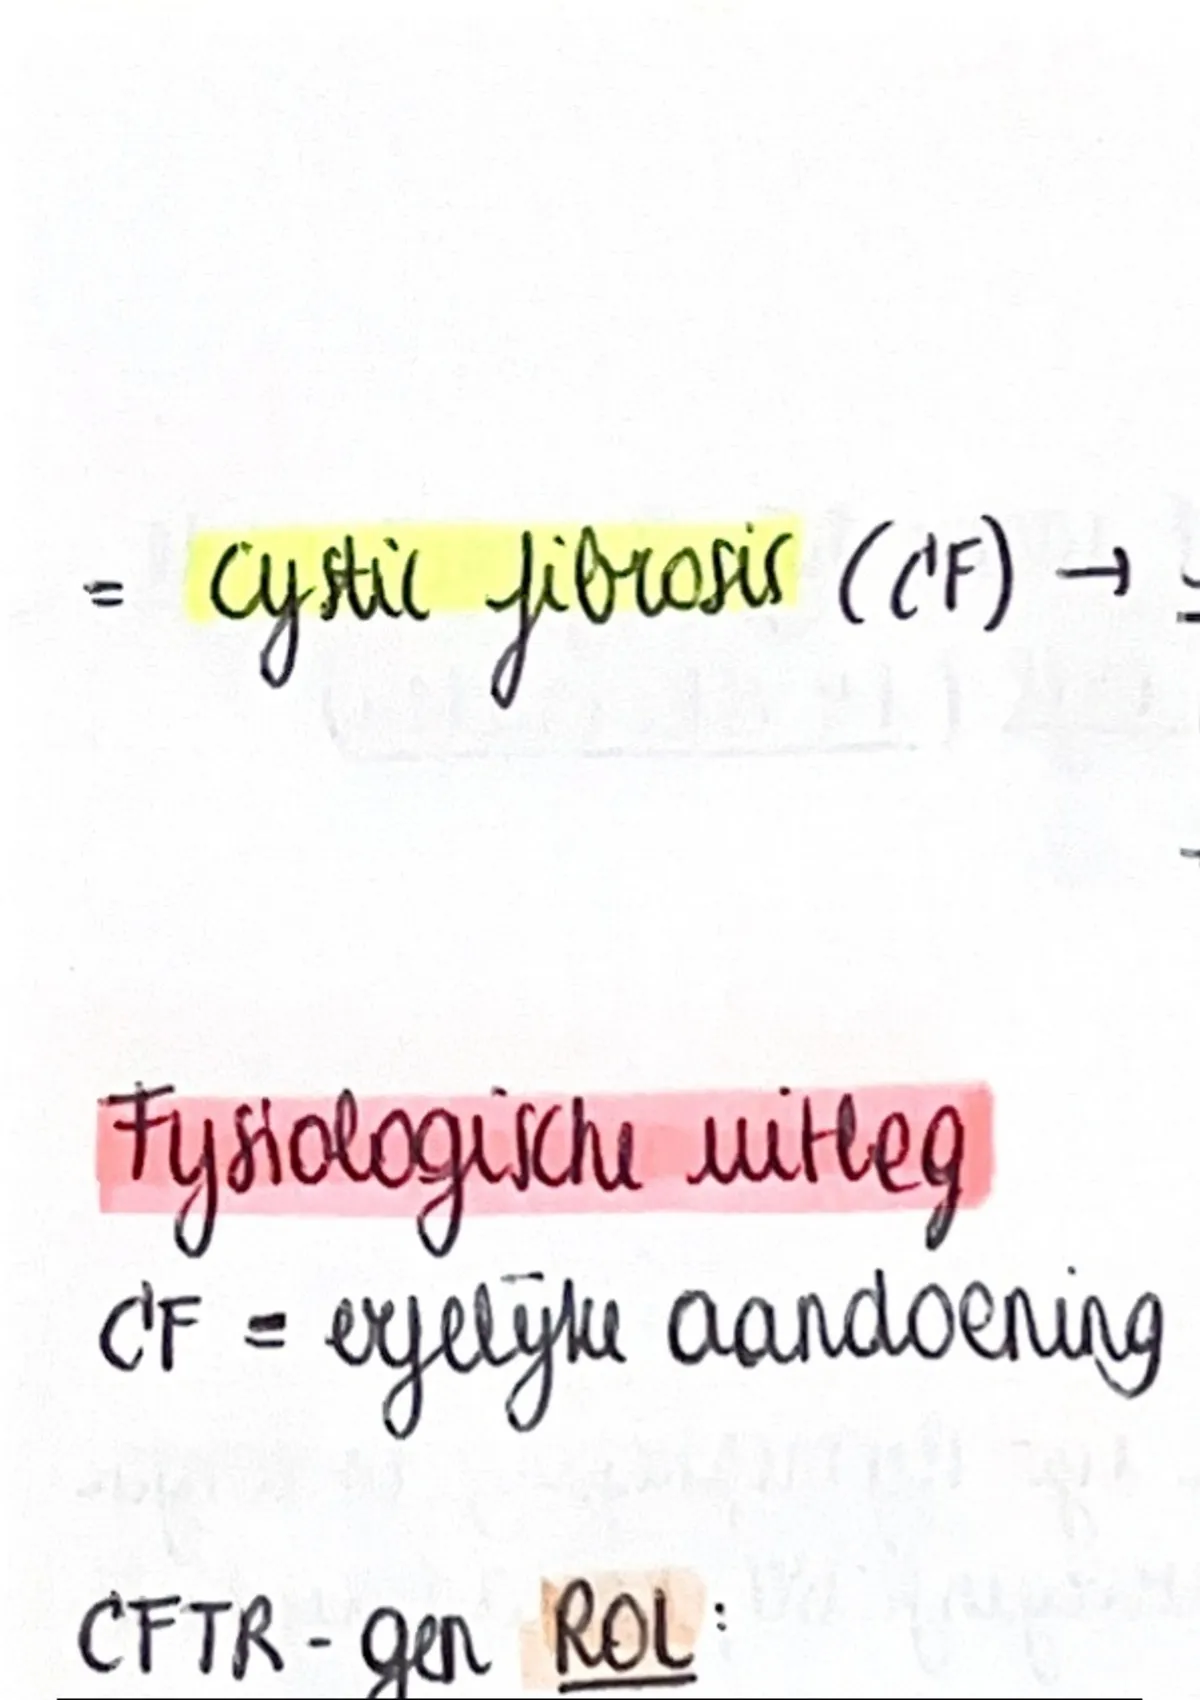 = cystic fibrosis (CF) →
Fysiologische uitleg
CF = erfelijke aandoening
CFTR - gen ROL :